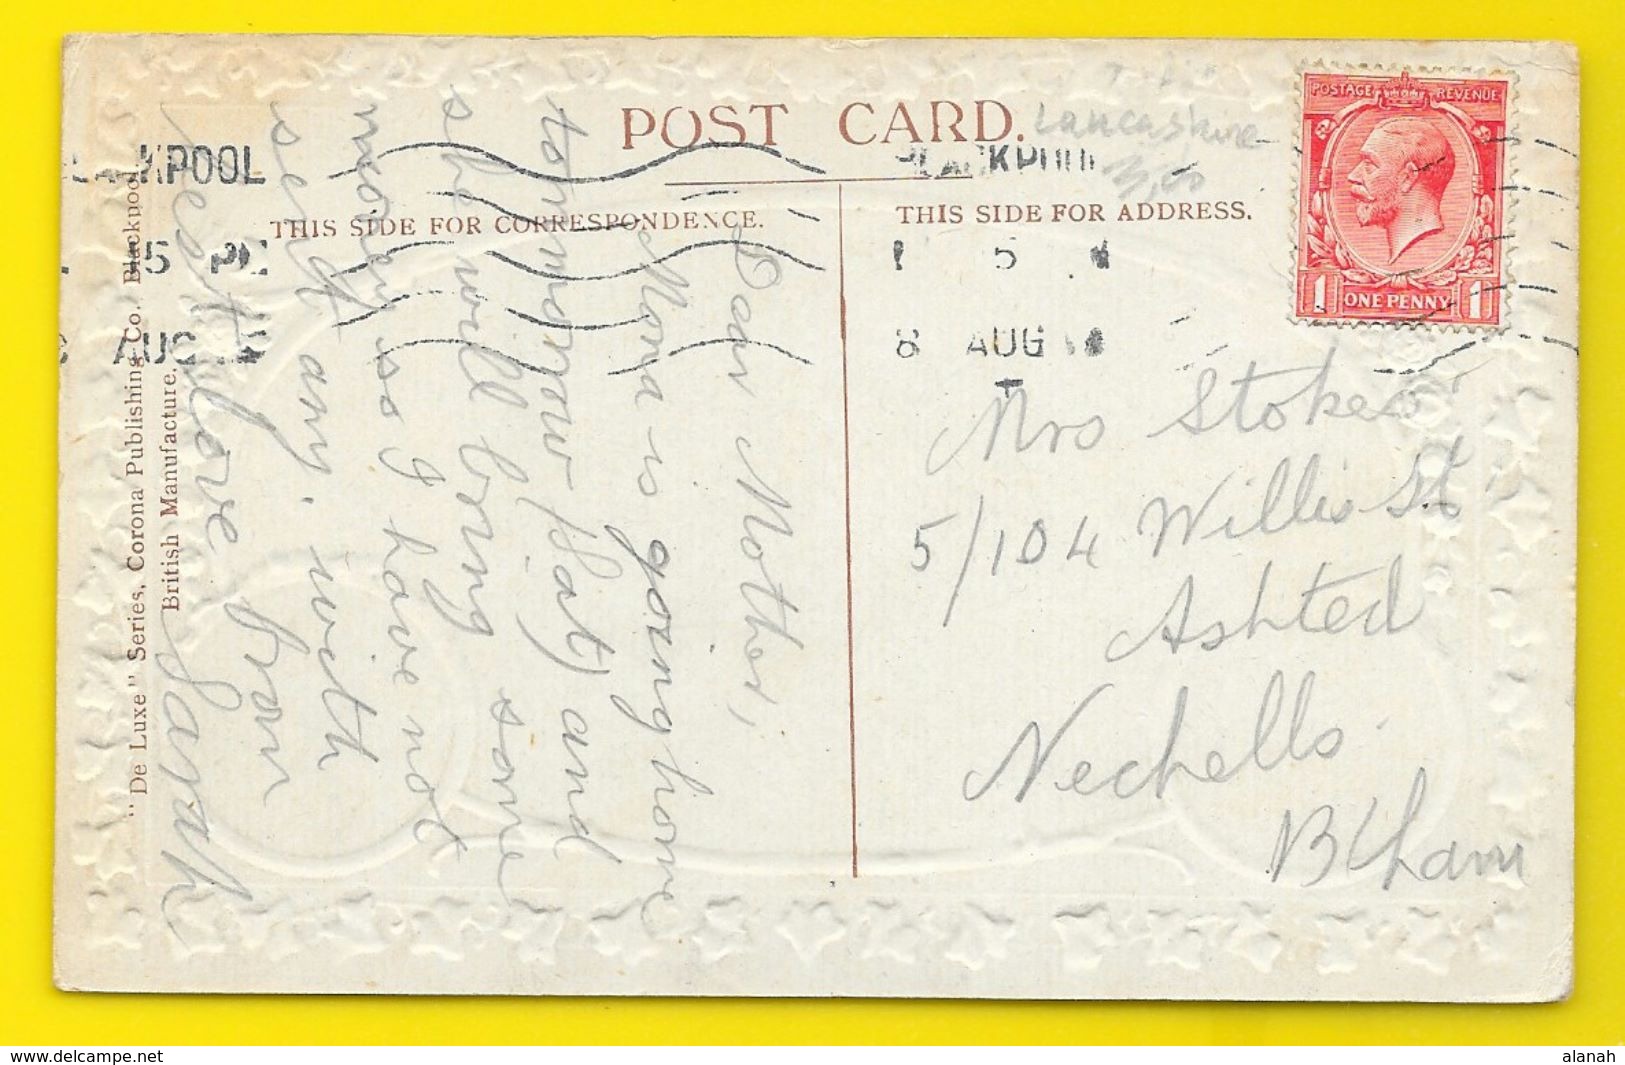 POST CARD.
Lancashire
THIS SIDE FOR CORRESPONDENCE.
THIS SIDE FOR ADDRESS.
POSTAGE REVENUE
1 ONE PENNY 1
BLACKPOOL
8 AUG
Dear Mother,
Mona is going home
tomorrow (Sat) and
she will bring some
money as I have not
sent any. with
Best love from
Sarah
Mrs Stokes
5/104 Willis St
Ashted
Nechells
B'ham
"De Luxe" Series, Corona Publishing Co. Blackpool.
British Manufacture.
alanah